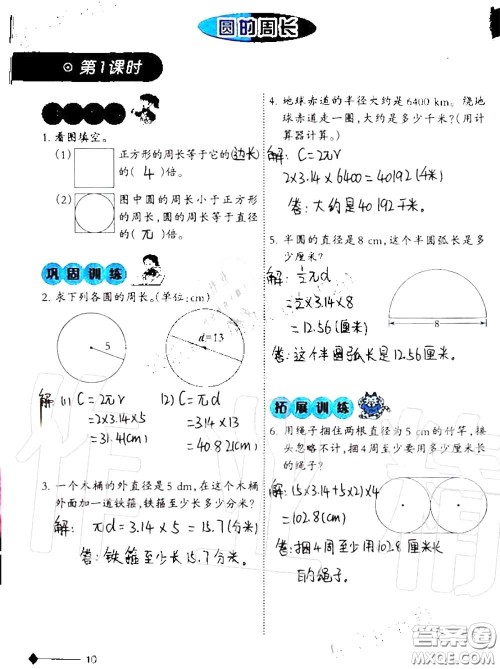 圆的周长
第1课时
1. 看图填空。
(1) 正方形的周长等于它的(边长)
的( 4 )倍。
(2) 图中圆的周长小于正方形
的周长,圆的周长等于直径
的( π )倍。
巩固训练
2. 求下列各圆的周长。(单位:cm)
5
d=13
解 (1) C=2πr
=2×3.14×5
=31.4(cm)
(2) C=πd
=3.14×13
=40.82(cm)
3. 一个木桶的外直径是5 dm,在这个木桶
外面加一道铁箍,铁箍至少长多少分米?
解: πd=3.14×5=15.7(分米)
答:铁箍至少长15.7分米。
10
4. 地球赤道的半径大约是6400 km。绕地
球赤道走一圈,大约是多少千米?(用计
算器计算。)
解: C=2πr
2×3.14×6400=40192(千米)
答:大约是40192千米。
5. 半圆的直径是8 cm,这个半圆弧长是多
少厘米?
解: ½πd
=½×3.14×8
=12.56(厘米)
8
答:这个半圆弧长是12.56厘米。
拓展训练
6. 用绳子捆住两根直径为5 cm的竹竿,接
头忽略不计,捆4周至少要用多少厘米长
的绳子?
解: (5×3.14+5×2)×4
=102.8(cm)
答:捆4周至少用102.8厘米长
的绳子。
答案圈
MXQE.COM